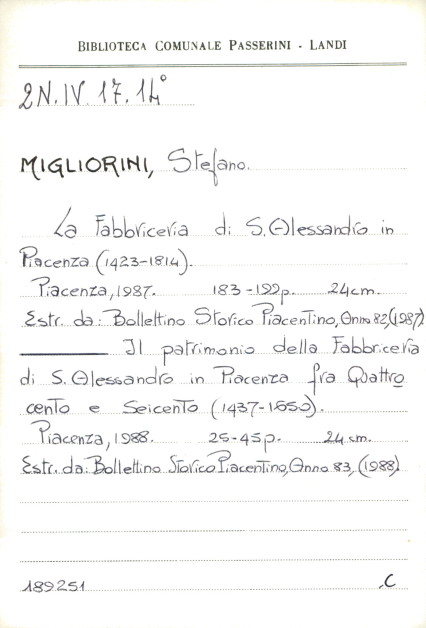 BIBLIOTECA COMUNALE PASSERINI - LANDI
2N.IV.17.14°
MIGLIORINI, Stefano.
La Fabbriceria di S. Alessandro in
Piacenza (1423-1814).
Piacenza, 1987. 183-199p. 24cm.
Estr. da: Bollettino Storico Piacentino, Anno 82, (1987)
Il patrimonio della Fabbriceria
di S. Alessandro in Piacenza fra Quattro
cento e Seicento (1437-1650).
Piacenza, 1988. 25-45p. 24 cm.
Estr. da: Bollettino Storico Piacentino, Anno 83, (1988)
189251 C